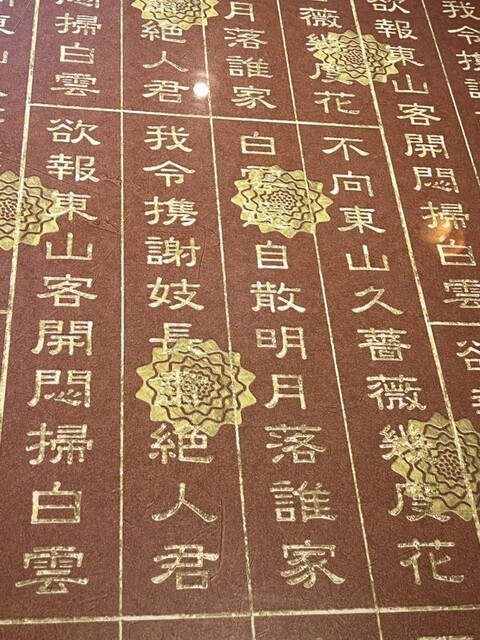 我令携
欲報東山客開悶掃白雲
薇幾度花
月落誰家
絶人君
悶掃白雲
不向東山久薔薇幾度花
白雲自散明月落誰家
我令携謝妓長絶人君
欲報東山客開悶掃白雲